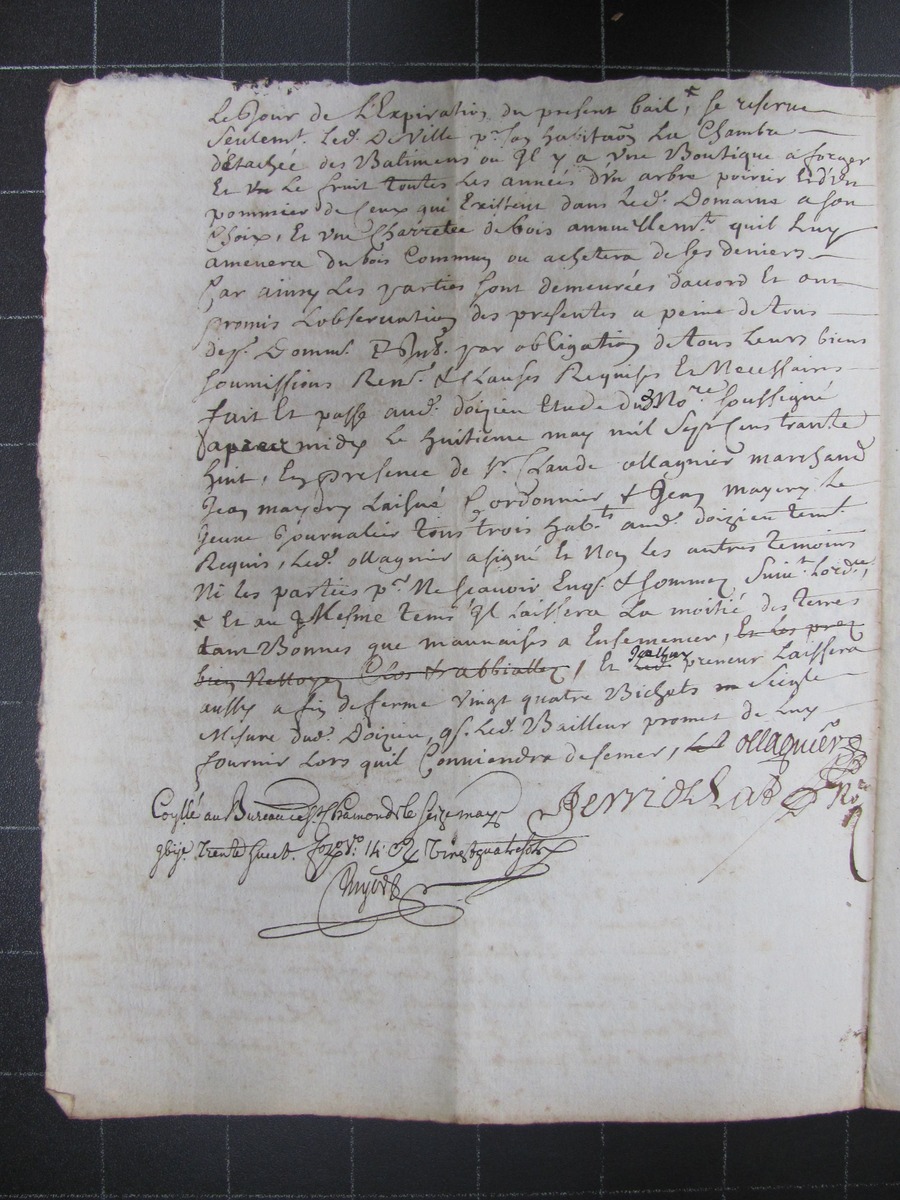 Le Jour de L'Expiration du present bail, * se reserve
Seulemt. Led. DeVille pr. son habitaōn La Chambre
detachée des Batimens ou Il y a vne Boutique a forger
Et Le fruit toutes les années d'vn arbre poirier Et d'vn
pommier de Ceux qui Existent dans Led. Domaine a son
Choix, Et vne Charretée de bois annuellemt. quil Luy
amenera du bois Commun ou achetera de Ses deniers
Car ainsy Les parties sont demeurées daccord Et ont
promis Lobservation des presentes a peine de tous
desp. Domm. & Int. par obligation de tous Leurs biens
soumissions Renon. & Clauses Requises Et Necessaires
fait Et passé aud. doizieu Etude du No.re soussigné
apres midy le huitieme may mil Sept Cens trante
huit, En presence de Sr. Claude ollagnier marchand
Jean mayery Laisné Cordonnier & Jean mayery le
jeune Journalier tous trois habts. aud. doizieu temt.
Requis, Led. ollagnier a signé Et Non les autres temoins
Ni les parties pr. Ne Scavoir Enqs. & sommez Suivt. Lordce.,
* Et au Mesme tems Il Laissera La moitié des terres
tant Bonnes que mauvaises a Ensemencer, Et Les prez
bien Nettoyez Clos & rabbiallez, Et Led. preneur Laissera
aussy a fin de ferme vingt quatre Bichets Seigle
Mesure dud. Doizieu, qe. Led. Bailleur promet de Luy
fournir Lors quil Conviendra de semer, ollagnier
No.re
Collé au Bureau de St Chamond le Seize may
trente huit. fo. vo. 14. vingt quatre sols